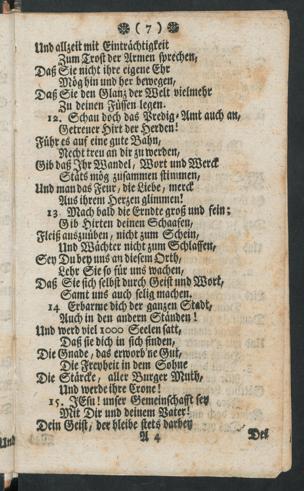 ( 7 )
Und allzeit mit Einträchtigkeit
Zum Trost der Armen sprechen,
Daß Sie nicht ihre eigene Ehr
Mög hin und her bewegen,
Daß Sie den Glanz der Welt vielmehr
Zu deinen Füssen legen.
12. Schau doch das Predig-Amt auch an,
Getreuer Hirt der Herden!
Führ es auf eine gute Bahn,
Recht treu an dir zu werden,
Gib daß Ihr Wandel, Wort und Werck
Stäts mög zusammen stimmen,
Und man das Feur, die Liebe, merck
Aus ihrem Herzen glimmen!
13 Mach bald die Erndte groß und fein;
Gib Hirten deinen Schaafen,
Fleiß auszuüben, nicht zum Schein,
Und Wächter nicht zum Schlaffen,
Sey Du bey uns an diesem Orth,
Lehr Sie so für uns wachen,
Daß Sie sich selbst durch Geist und Wort,
Samt uns auch selig machen.
14 Erbarme dich der ganzen Stadt,
Auch in den andern Ständen!
Und werd viel 1000 Seelen satt,
Daß sie dich in sich finden,
Die Gnade, das erworb'ne Gut,
Die Freyheit in dem Sohne
Die Stärcke, aller Burger Muth,
Und werde ihre Crone!
15. JEsu! unser Gemeinschafft sey
Mit Dir und deinem Vater!
Dein Geist, der bleibe stets darbey
A 4
Und